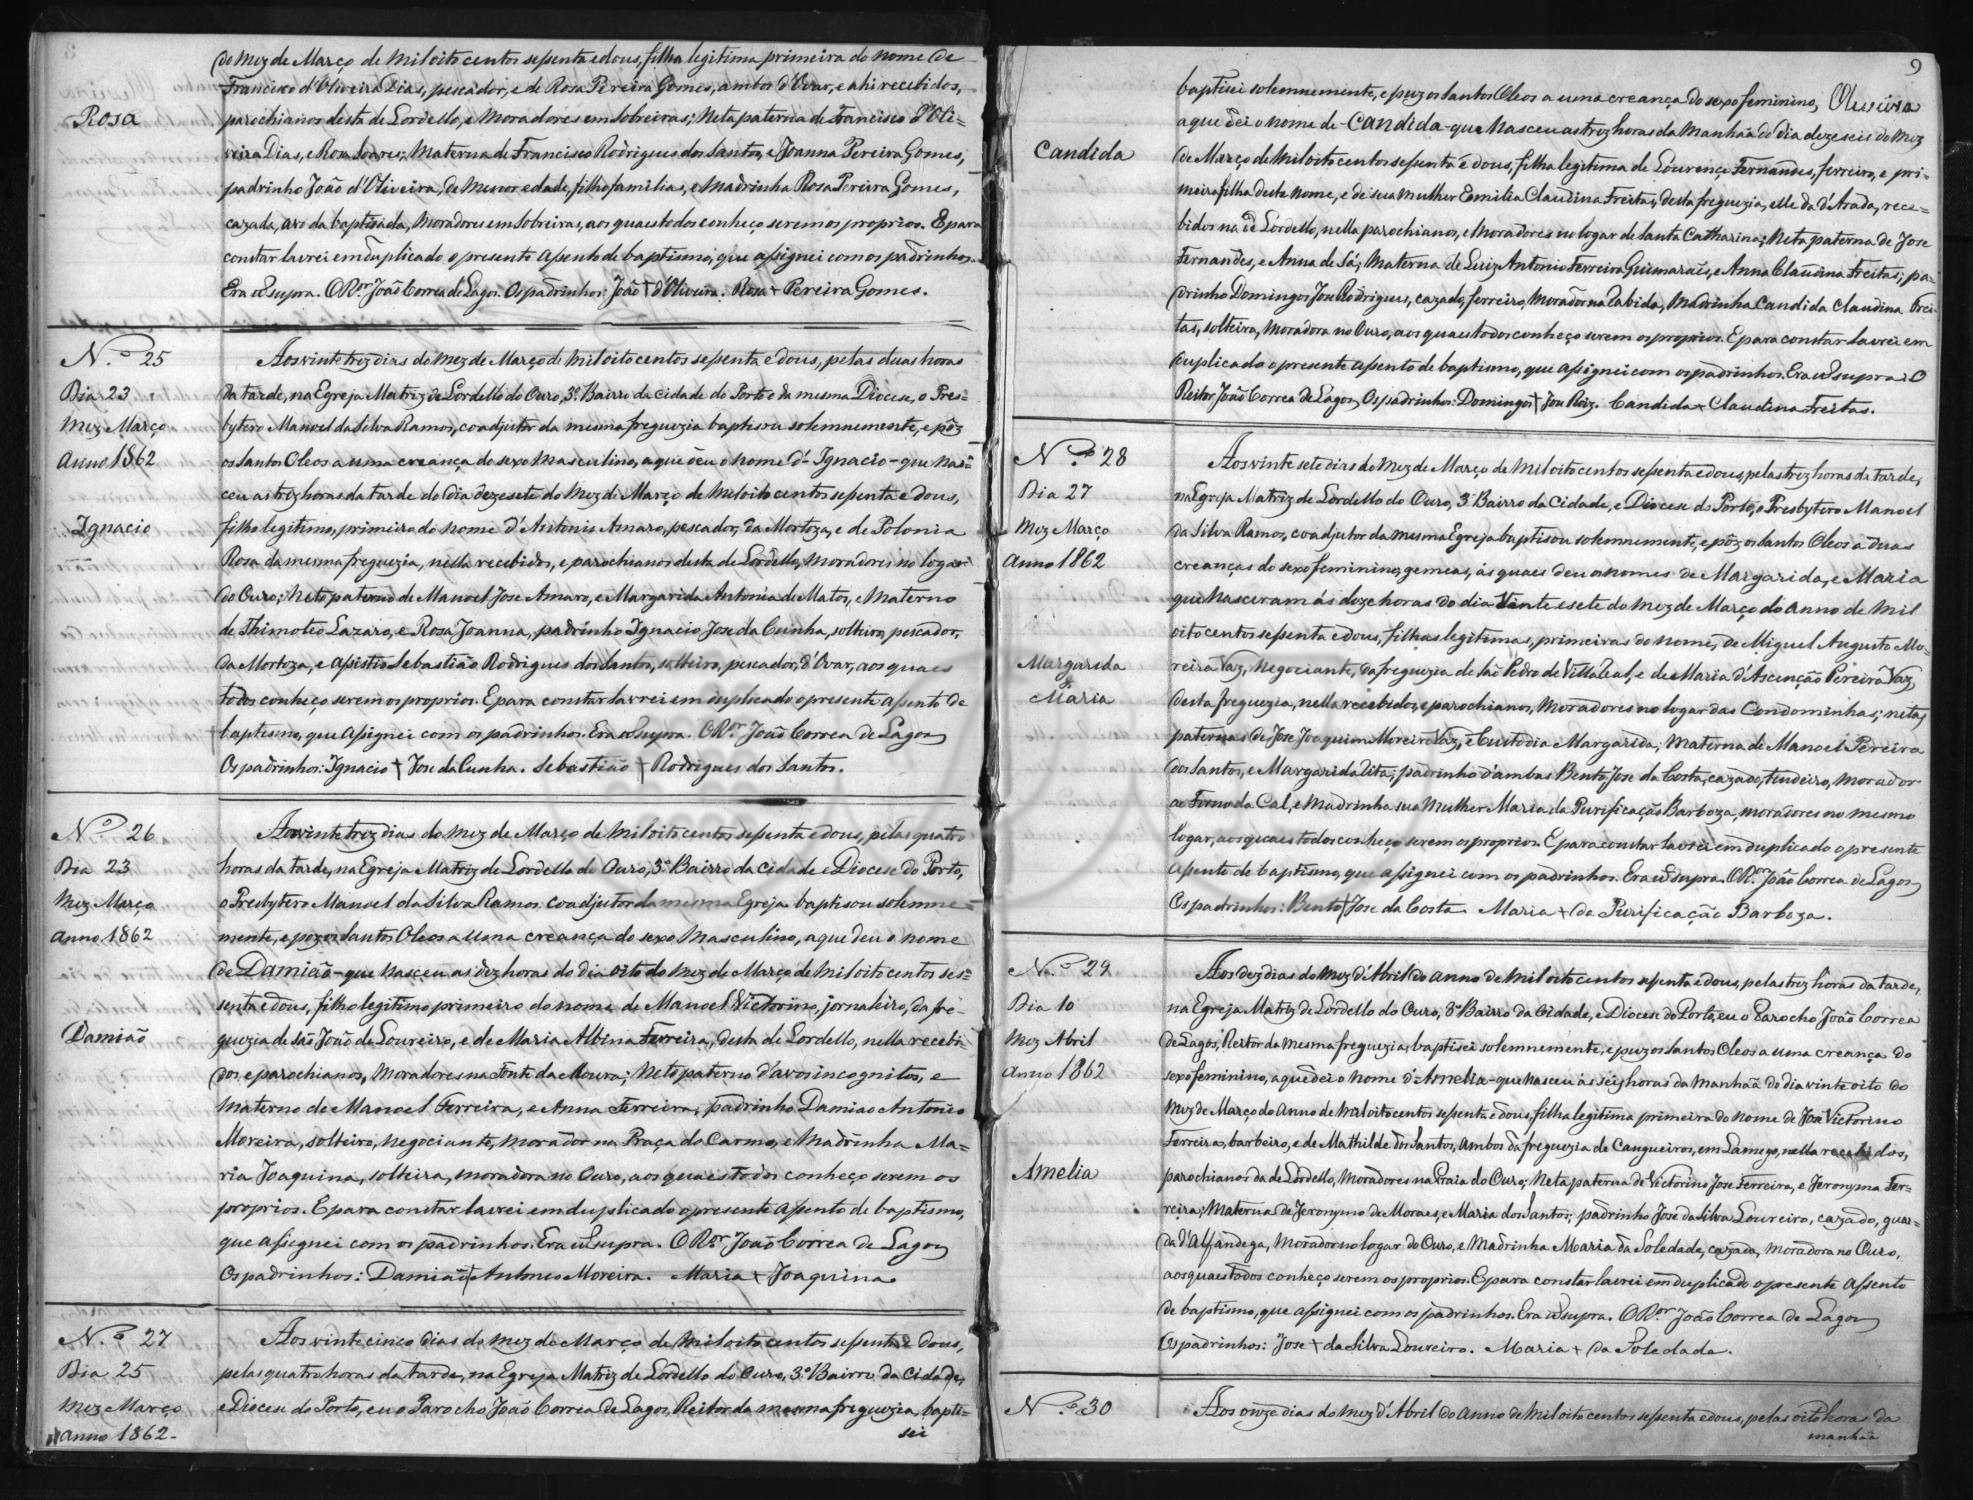 do mez de Março de mil oito centos sessenta e dous, filha legitima primeira do nome de
Francisco d'Oliveira Dias, pescador, e de Rosa Pereira Gomes, ambos d'Ovar, e ahi recebidos,
Rosa
parochianos desta de Lordello, e moradores em Sobreiras; Neta paterna de Francisco d'Oli=
veira Dias, e Rosa Soares; Materna de Francisco Rodrigues dos Santos, e Joanna Pereira Gomes,
padrinho João d'Oliveira, de menor edade, filho familias, e Madrinha Rosa Pereira Gomes,
cazada, avo da baptisada, moradores em Sobreiras, aos quaes todos conheço serem os proprios. E para
constar lavrei em duplicado o presente assento de baptismo, que assignei com os padrinhos.
Era ut supra. O Ror João Correa de Lagos. Os padrinhos: João + d'Oliveira. Rosa + Pereira Gomes.
N.º 25
Dia 23
Mez Março
Anno 1862
Ignacio
Aos vinte trez dias do mez de Março de mil oito centos sessenta e dous, pelas duas horas
da tarde, na Egreja Matriz de Lordello do Ouro, 3º Bairro da Cidade do Porto da mesma Diocese, o Pres=
bytero Manoel da Silva Ramos, coadjutor da mesma freguezia baptisou solemnemente, e pôz
os Santos Oleos a uma creança do sexo masculino, a que deu o nome d'-Ignacio-que nas=
ceu as trez horas da tarde do dia dezesete do mez de Março de mil oito centos sessenta e dous,
filho legitimo, primeiro do nome d'Antonio Amaro, pescador, da Mortoza, e de Polonia
Rosa da mesma freguezia, nella recebidos, e parochianos desta de Lordello, moradores no logar
do Ouro; Neto paterno de Manoel Jose Amaro, e Margarida Antonia de Matos, e Materno
de Thimoteo Lazaro, e Rosa Joanna, padrinho Ignacio Jose da Cunha, solteiro, pescador,
da Mortoza, e assistio Sebastião Rodrigues dos Santos, solteiro, pescador, d'Ovar, aos quaes
todos conheço serem os proprios. E para constar lavrei em duplicado o presente assento de
baptismo, que assignei com os padrinhos. Era ut supra. O Ror João Correa de Lagos
Os padrinhos: Ignacio + Jose da Cunha. Sebastião + Rodrigues dos Santos.
N.º 26
Dia 23
Mez Março
Anno 1862
Damião
Aos vinte trez dias do mez de Março de mil oito centos sessenta e dous, pelas quatro
horas da tarde, na Egreja Matriz de Lordello do Ouro, 3º Bairro da Cidade e Diocese do Porto,
o Presbytero Manoel da Silva Ramos coadjutor da mesma Egreja baptisou solemne=
mente, e poz os Santos Oleos a uma creança do sexo masculino, a que deu o nome
de Damião-que nasceu as dez horas do dia oito do mez de Março de mil oito centos ses=
senta e dous, filho legitimo primeiro do nome de Manoel Victorino, jornaleiro, da fre-
guezia de São João de Loureiro, e de Maria Albina Ferreira, desta de Lordello, nella recebi=
dos, e parochianos, moradores na Fonte da Moura; Neto paterno d'avos incognitos, e
materno de Manoel Ferreira, e Anna Ferreira; padrinho Damiao Antonio
Moreira, solteiro, negociante, morador na Praça do Carmo, e Madrinha Ma=
ria Joaquina, solteira, moradora no Ouro, aos quaes todos conheço serem os
proprios. E para constar lavrei em duplicado o presente assento de baptismo,
que assignei com os padrinhos. Era ut supra. O Ror João Correa de Lagos
Os padrinhos: Damião + Antonio Moreira. Maria + Joaquina.
N.º 27
Dia 25
Mez Março
Anno 1862-
Aos vinte cinco dias do mez de Março de mil oito centos sessenta e dous,
pelas quatro horas da tarde, na Egreja Matriz de Lordello do Ouro, 3º Bairro da Cidade,
e Diocese do Porto, eu o Parocho João Correa de Lagos, Reitor da mesma freguezia, bapti=
sei
9
Oliveira
Candida
baptisei solemnemente, e puz os Santos Oleos a uma creança do sexo feminino,
a que dei o nome de-Candida-que nasceu as trez horas da manhã do dia dezeseis do mez
de Março de mil oito centos sessenta e dous, filha legitima de Lourenço Fernandes, ferreiro, e pri=
meira filha deste nome, e de sua mulher Emilia Claudina Freitas, desta freguezia, elle da d'Arada, rece=
bidos na de Lordello, nella parochianos, e moradores no logar de Santa Catharina; Neta paterna de Jose
Fernandes, e Anna de Sá; Materna de Luiz Antonio Ferreira Guimarães, e Anna Claudina Freitas; pa=
drinho Domingos Jose Rodrigues, cazado, ferreiro, morador na Tabida, Madrinha Candida Claudina Frei=
tas, solteira, moradora no Ouro, aos quaes todos conheço serem os proprios. E para constar lavrei em
duplicado o presente assento de baptismo, que assignei com os padrinhos. Era ut supra. O
Reitor João Correa de Lagos, Os padrinhos: Domingos + Jose Roiz. Candida + Claudina Freitas.
N.º 28
Dia 27
Mez Março
Anno 1862
Margarida
e
Maria
Aos vinte sete dias do mez de Março de mil oito centos sessenta e dous, pelas trez horas da tarde,
na Egreja Matriz de Lordello do Ouro, 3º Bairro da Cidade, e Diocese do Porto, o Presbytero Manoel
da Silva Ramos, coadjutor da mesma Egreja baptisou solemnemente, e pôz os Santos Oleos a duas
creanças do sexo feminino, gemeas, ás quaes deu os nomes de Margarida, e Maria
que nasceram ás doze horas do dia vinte e sete do mez de Março do anno de mil
oito centos sessenta e dous, filhas legitimas, primeiras do nome, de Miguel Augusto Mo=
reira Vaz, negociante, da freguezia de São Pedro de Villa Real, e de Maria d'Ascenção Pereira Vaz,
desta freguezia, nella recebidos, e parochianos, moradores no logar das Condominhas; netas
paternas de Jose Joaquim Moreira Vaz, e Custodia Margarida; Materna de Manoel Pereira
dos Santos, e Margarida Rita; padrinho d'ambas Bento Jose da Costa, cazado, tendeiro, morador
ao Forno da Cal, e Madrinha sua mulher Maria da Purificação Barboza, moradores no mesmo
logar, aos quaes todos conheço serem os proprios. E para constar lavrei em duplicado o presente
assento de baptismo, que assignei com os padrinhos. Era ut supra. O Ror João Correa de Lagos
Os padrinhos: Bento + Jose da Costa. Maria + da Purificação Barboza.
N.º 29
Dia 10
Mez Abril
Anno 1862
Amelia
Aos dez dias do mez d'Abril do anno de mil oito centos sessenta e dous, pelas trez horas da tarde,
na Egreja Matriz de Lordello do Ouro, 3º Bairro da Cidade, e Diocese do Porto, eu o Parocho João Correa
de Lagos, Reitor da mesma freguezia, baptisei solemnemente, e puz os Santos Oleos a uma creança do
sexo feminino, a que dei o nome d'Amelia-que nasceu ás seis horas da manhã do dia vinte oito do
mez de Março do anno de mil oito centos sessenta e dous, filha legitima primeira do nome de Jose Victorino
Ferreira, barbeiro, e de Mathilde dos Santos, ambos da freguezia de Cangueiros, em Lamego, nella recebidos,
parochianos da de Lordello, moradores na Praia do Ouro; Neta paterna de Victorino Jose Ferreira, e Jeronyma Fer=
reira; Materna de Jeronymo de Moraes, e Maria dos Santos; padrinho Jose da Silva Loureiro, cazado, guar=
da d'Alfandega, morador no logar do Ouro, e Madrinha Maria da Soledade, cazada, moradora no Ouro,
aos quaes todos conheço serem os proprios. E para constar lavrei em duplicado o presente assento
de baptismo, que assignei com os padrinhos. Era ut supra. O Ror João Correa de Lagos
Os padrinhos: Jose + da Silva Loureiro. Maria + da Soledade.
N.º 30
Aos onze dias do mez d'Abril do anno de mil oito centos sessenta e dous, pelas oito horas da
manhãa